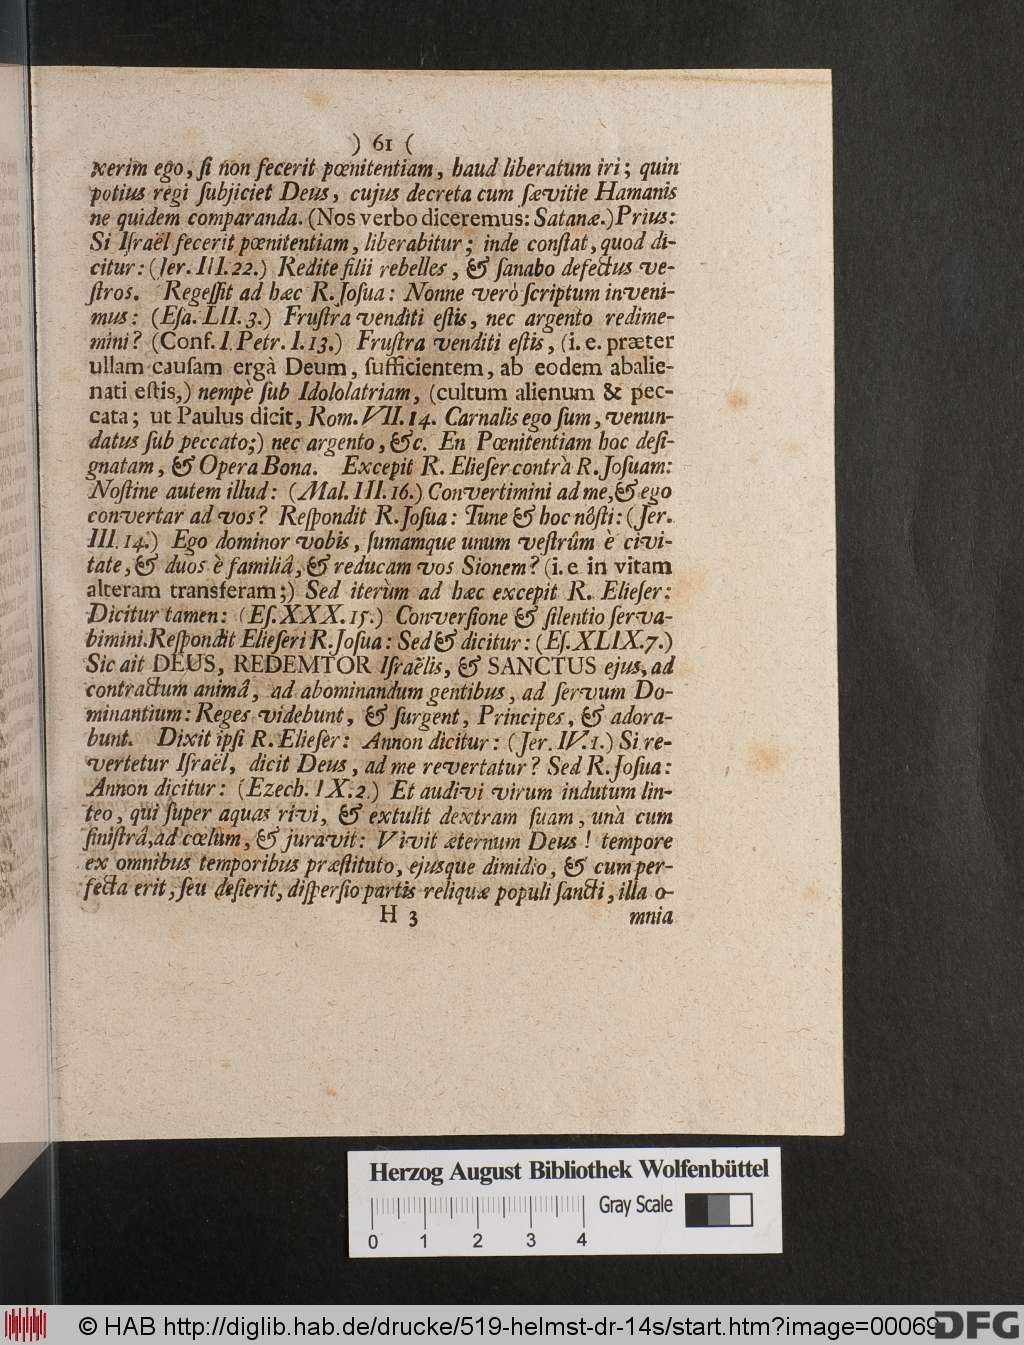 ) 61 (
xerim ego, ſi non fecerit pœnitentiam, haud liberatum iri; quin
potius regi ſubjiciet Deus, cujus decreta cum ſævitie Hamanis
ne quidem comparanda. (Nos verbo diceremus: Satanæ.) Prius:
Si Iſraël fecerit pœnitentiam, liberabitur; inde conſtat, quod di-
citur: (Jer. III. 22.) Redite filii rebelles, & ſanabo defectus ve-
ſtros. Regeſſit ad hæc R. Joſua: Nonne verò ſcriptum inveni-
mus: (Eſa. LII. 3.) Fruſtra venditi eſtis, nec argento redime-
mini? (Conf. I. Petr. I. 13.) Fruſtra venditi eſtis, (i. e. præter
ullam cauſam ergà Deum, ſufficientem, ab eodem abalie-
nati eſtis,) nempè ſub Idololatriam, (cultum alienum & pec-
cata; ut Paulus dicit, Rom. VII. 14. Carnalis ego ſum, venun-
datus ſub peccato;) nec argento, &c. En Pœnitentiam hoc deſi-
gnatam, & Opera Bona. Excepit R. Elieſer contrà R. Joſuam:
Noſtine autem illud: (Mal. III. 16.) Convertimini ad me, & ego
convertar ad vos? Reſpondit R. Joſua: Tune & hoc nôſti: (Jer.
III. 14.) Ego dominor vobis, ſumamque unum veſtrûm è civi-
tate, & duos è familiâ, & reducam vos Sionem? (i. e in vitam
alteram transferam;) Sed iterùm ad hæc excepit R. Elieſer:
Dicitur tamen: (Eſ. XXX. 15.) Converſione & ſilentio ſerva-
bimini. Reſpondit Elieſeri R. Joſua: Sed & dicitur: (Eſ. XLIX. 7.)
Sic ait DEUS, REDEMTOR Iſraëlis, & SANCTUS ejus, ad
contractum animâ, ad abominandum gentibus, ad ſervum Do-
minantium: Reges videbunt, & ſurgent, Principes, & adora-
bunt. Dixit ipſi R. Elieſer: Annon dicitur: (Jer. IV. 1.) Si re-
vertetur Iſraël, dicit Deus, ad me revertatur? Sed R. Joſua:
Annon dicitur: (Ezech. IX. 2.) Et audivi virum indutum lin-
teo, qui ſuper aquas rivi, & extulit dextram ſuam, unà cum
ſiniſtrâ, ad cœlum, & juravit: Vivit æternum Deus! tempore
ex omnibus temporibus præſtituto, ejusque dimidio, & cum per-
fecta erit, ſeu deſierit, diſperſio partis reliquæ populi ſancti, illa o-
H 3 mnia
Herzog August Bibliothek Wolfenbüttel
Gray Scale
0 1 2 3 4
© HAB http://diglib.hab.de/drucke/519-helmst-dr-14s/start.htm?image=00069
DFG